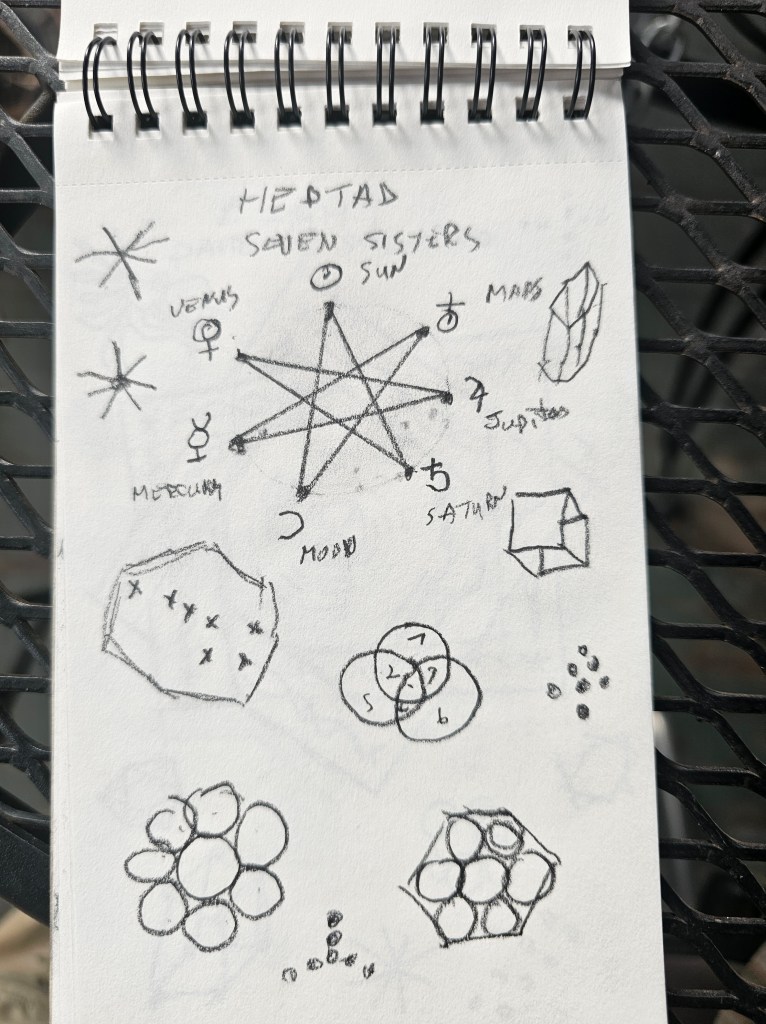 HEPTAD
SEVEN SISTERS
☉ SUN
VENUS
♀
MARS
♃
Jupiter
☿
♄
SATURN
MERCURY
☽
MOON
1
2
3
5
6